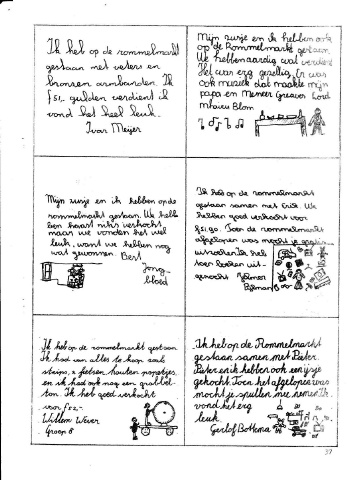 Ik heb op de rommelmarkt
gestaan met veters en
bronzen armbanden. Ik
f51,- gulden verdient ik
vond het heel leuk.
Ivar Meijer
Mijn zusje en ik hebben ook
op de Rommelmarkt gestaan.
We hebben aardig wat verdient
Het was erg gezellig. Er was
ook muziek dat maakte mijn
papa en Meneer
Blom
Mijn zusje en ik hebben op de
rommelmarkt gestaan. We hebb
ben haast niks verkocht
maar we vonden het wel
leuk. want we hebben nog
wat gewonnen. Bert
Jong
bloed
Ik heb op de rommelmarkt
gestaan samen met Erik. We
hebben goed verkocht voor
Toen de rommelmarkt
afgelopen was mocht je gratis
uitzoeken. Ik heb
toen boeken uit-
gezocht
Ik heb op de rommelmarkt gestaan
Ik had van alles te koop zoals
strips, 2 fietsen, houten popetjes,
en ik had ook nog een grabbel-
ton. Ik heb goed verkocht
voor
Willem Wever
Groep 8
Ik heb op de Rommelmarkt
gestaan samen met Pieter.
Pieter en ik hebben ook een ijsje
gekocht. Toen het afgelopen was
mocht je spullen mee nemen. Ik
vond het erg
leuk.
Gerlof Bottema